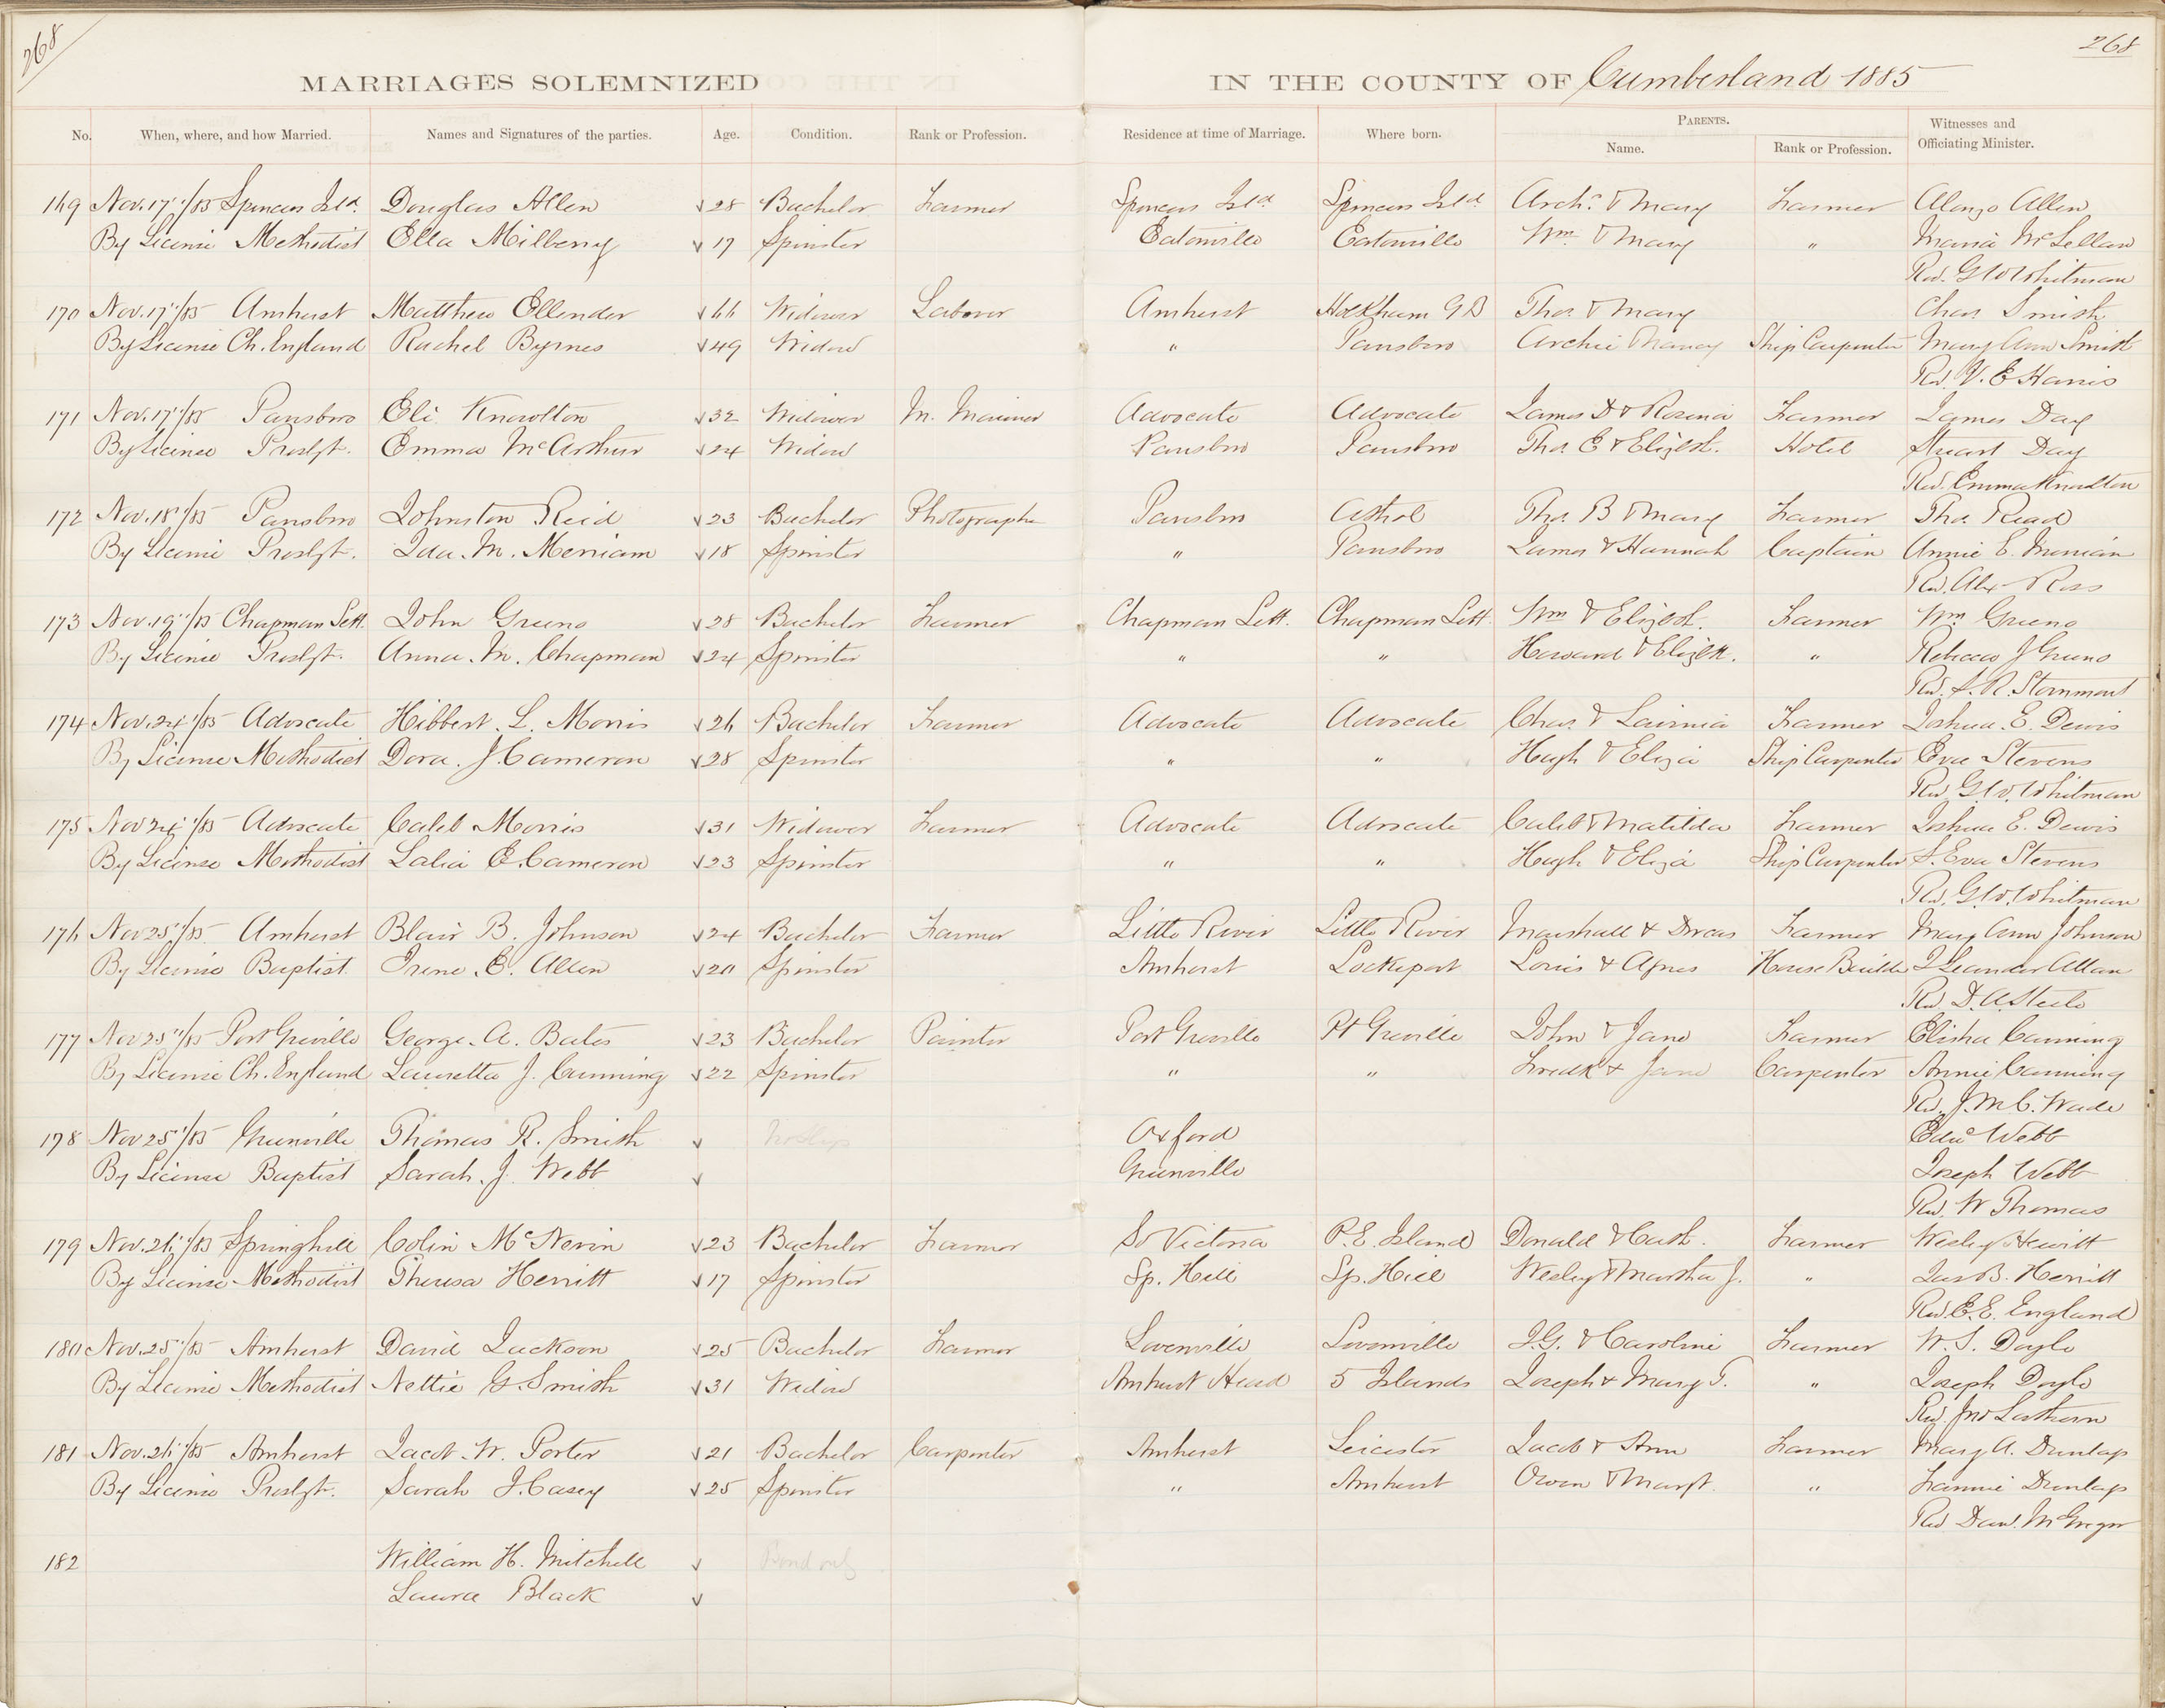 268
268
MARRIAGES SOLEMNIZED IN THE COUNTY OF Cumberland 1885
No. When, where, and how Married. Names and Signatures of the parties. Age. Condition. Rank or Profession. Residence at time of Marriage. Where born. PARENTS. Name. Rank or Profession. Witnesses and Officiating Minister.
169 Nov. 17"/85 Spencers Isld. Douglas Allen 28 Bachelor Farmer Spencers Isld Spencers Isld Archd & Mary Farmer Alonzo Allen
By License Methodist Ella Milberry 17 Spinster Eatonville Eatonville Wm & Mary " Maria McLellan
Rev. G W Whitman
170 Nov. 17"/85 Amherst Matthew Ellender 66 Widower Laborer Amherst Holkham G B Thos & Mary Chas Smith
By License Ch. England Rachel Byrnes 49 Widow " Parrsboro Archie & Nancy Ship Carpenter Mary Ann Smith
Rev. V. E Harris
171 Nov. 17"/85 Parrsboro Eli Knowlton 32 Widower M. Mariner Advocate Advocate James D & Rosina Farmer James Day
By License Presbyt. Emma McArthur 24 Widow Parrsboro Parrsboro Thos E & Elizbth. Hotel Stuart Day
Rev. Emma Knowlton
172 Nov. 18"/85 Parrsboro Johnston Reid 23 Bachelor Photographer Parrsboro Athol Thos B & Mary Farmer Thos Read
By License Presbyt. Ida. M. Merriam 18 Spinster " Parrsboro James & Hannah Captain Annie E. Merriam
Rev. Alex Ross
173 Nov. 19"/85 Chapman Sett. John Greeno 28 Bachelor Farmer Chapman Sett. Chapman Sett. Wm & Elizbth. Farmer Wm Greeno
By License Presbyt. Anna. M. Chapman 24 Spinster " " Howard & Elizbth. " Rebecca J Greeno
Rev.
174 Nov. 24"/85 Advocate Hibbert. L. Morris 26 Bachelor Farmer Advocate Advocate Chas & Lavinia Farmer Joshua. E. Dewis
By License Methodist Dora. J. Cameron 28 Spinster " " Hugh & Eliza Ship Carpenter Eva Stevens
Rev G. W. Whitman
175 Nov 24"/85 Advocate Caleb Morris 31 Widower Farmer Advocate Advocate Caleb & Matilda Farmer Joshua E. Dewis
By License Methodist Lalia E. Cameron 23 Spinster " " Hugh & Eliza Ship Carpenter S. Eva Stevens
Rev. G. W. Whitman
176 Nov 25"/85 Amherst Blair B. Johnson 24 Bachelor Farmer Little River Little River Marshall & Dorcas Farmer Mary Ann Johnson
By License Baptist. Irene. E. Allen 20 Spinster Amherst Lockeport Louis & Agnes House Builder J Leander Allan
Rev D. A Steele
177 Nov 25"/85 Port Greville George. A. Bates 23 Bachelor Painter Port Greville Pt Greville John & Jane Farmer Elisha Canning
By License Ch. England Lauretta J. Canning 22 Spinster " " Fredk & Jane Carpenter Annie Canning
Rev. J. M C. Wade
178 Nov 25"/85 Greenville Thomas R. Smith Oxford Edwd Webb
By License Baptist Sarah. J. Webb Greenville Joseph Webb
Rev. W Thomas
179 Nov. 26"/85 Springhill Colin McNevin 23 Bachelor Farmer So Victoria P. E. Island Donald & Cath. Farmer Wesley Hewitt
By License Methodist Theresa Herritt 17 Spinster Sp. Hill Sp. Hill Wesley & Martha J. " Jas B. Herritt
Rev. E. E. England
180 Nov. 25"/85 Amherst David Jackson 25 Bachelor Farmer J. G. & Caroline Farmer W. S. Doyle
By License Methodist Nettie G. Smith 31 Widow Amherst Head 5 Islands Joseph & Mary T. " Joseph Doyle
Rev. Jno Lathern
181 Nov. 26"/85 Amherst Jacob. W. Porter 21 Bachelor Carpenter Amherst Leicester Jacob & Ann Farmer Mary A. Dunlap
By License Presbyt. Sarah J. Casey 25 Spinster " Amherst Owen & Margt. " Fannie Dunlap
Rev Davd. McGregor
182 William H. Mitchell Bond only
Laura Black